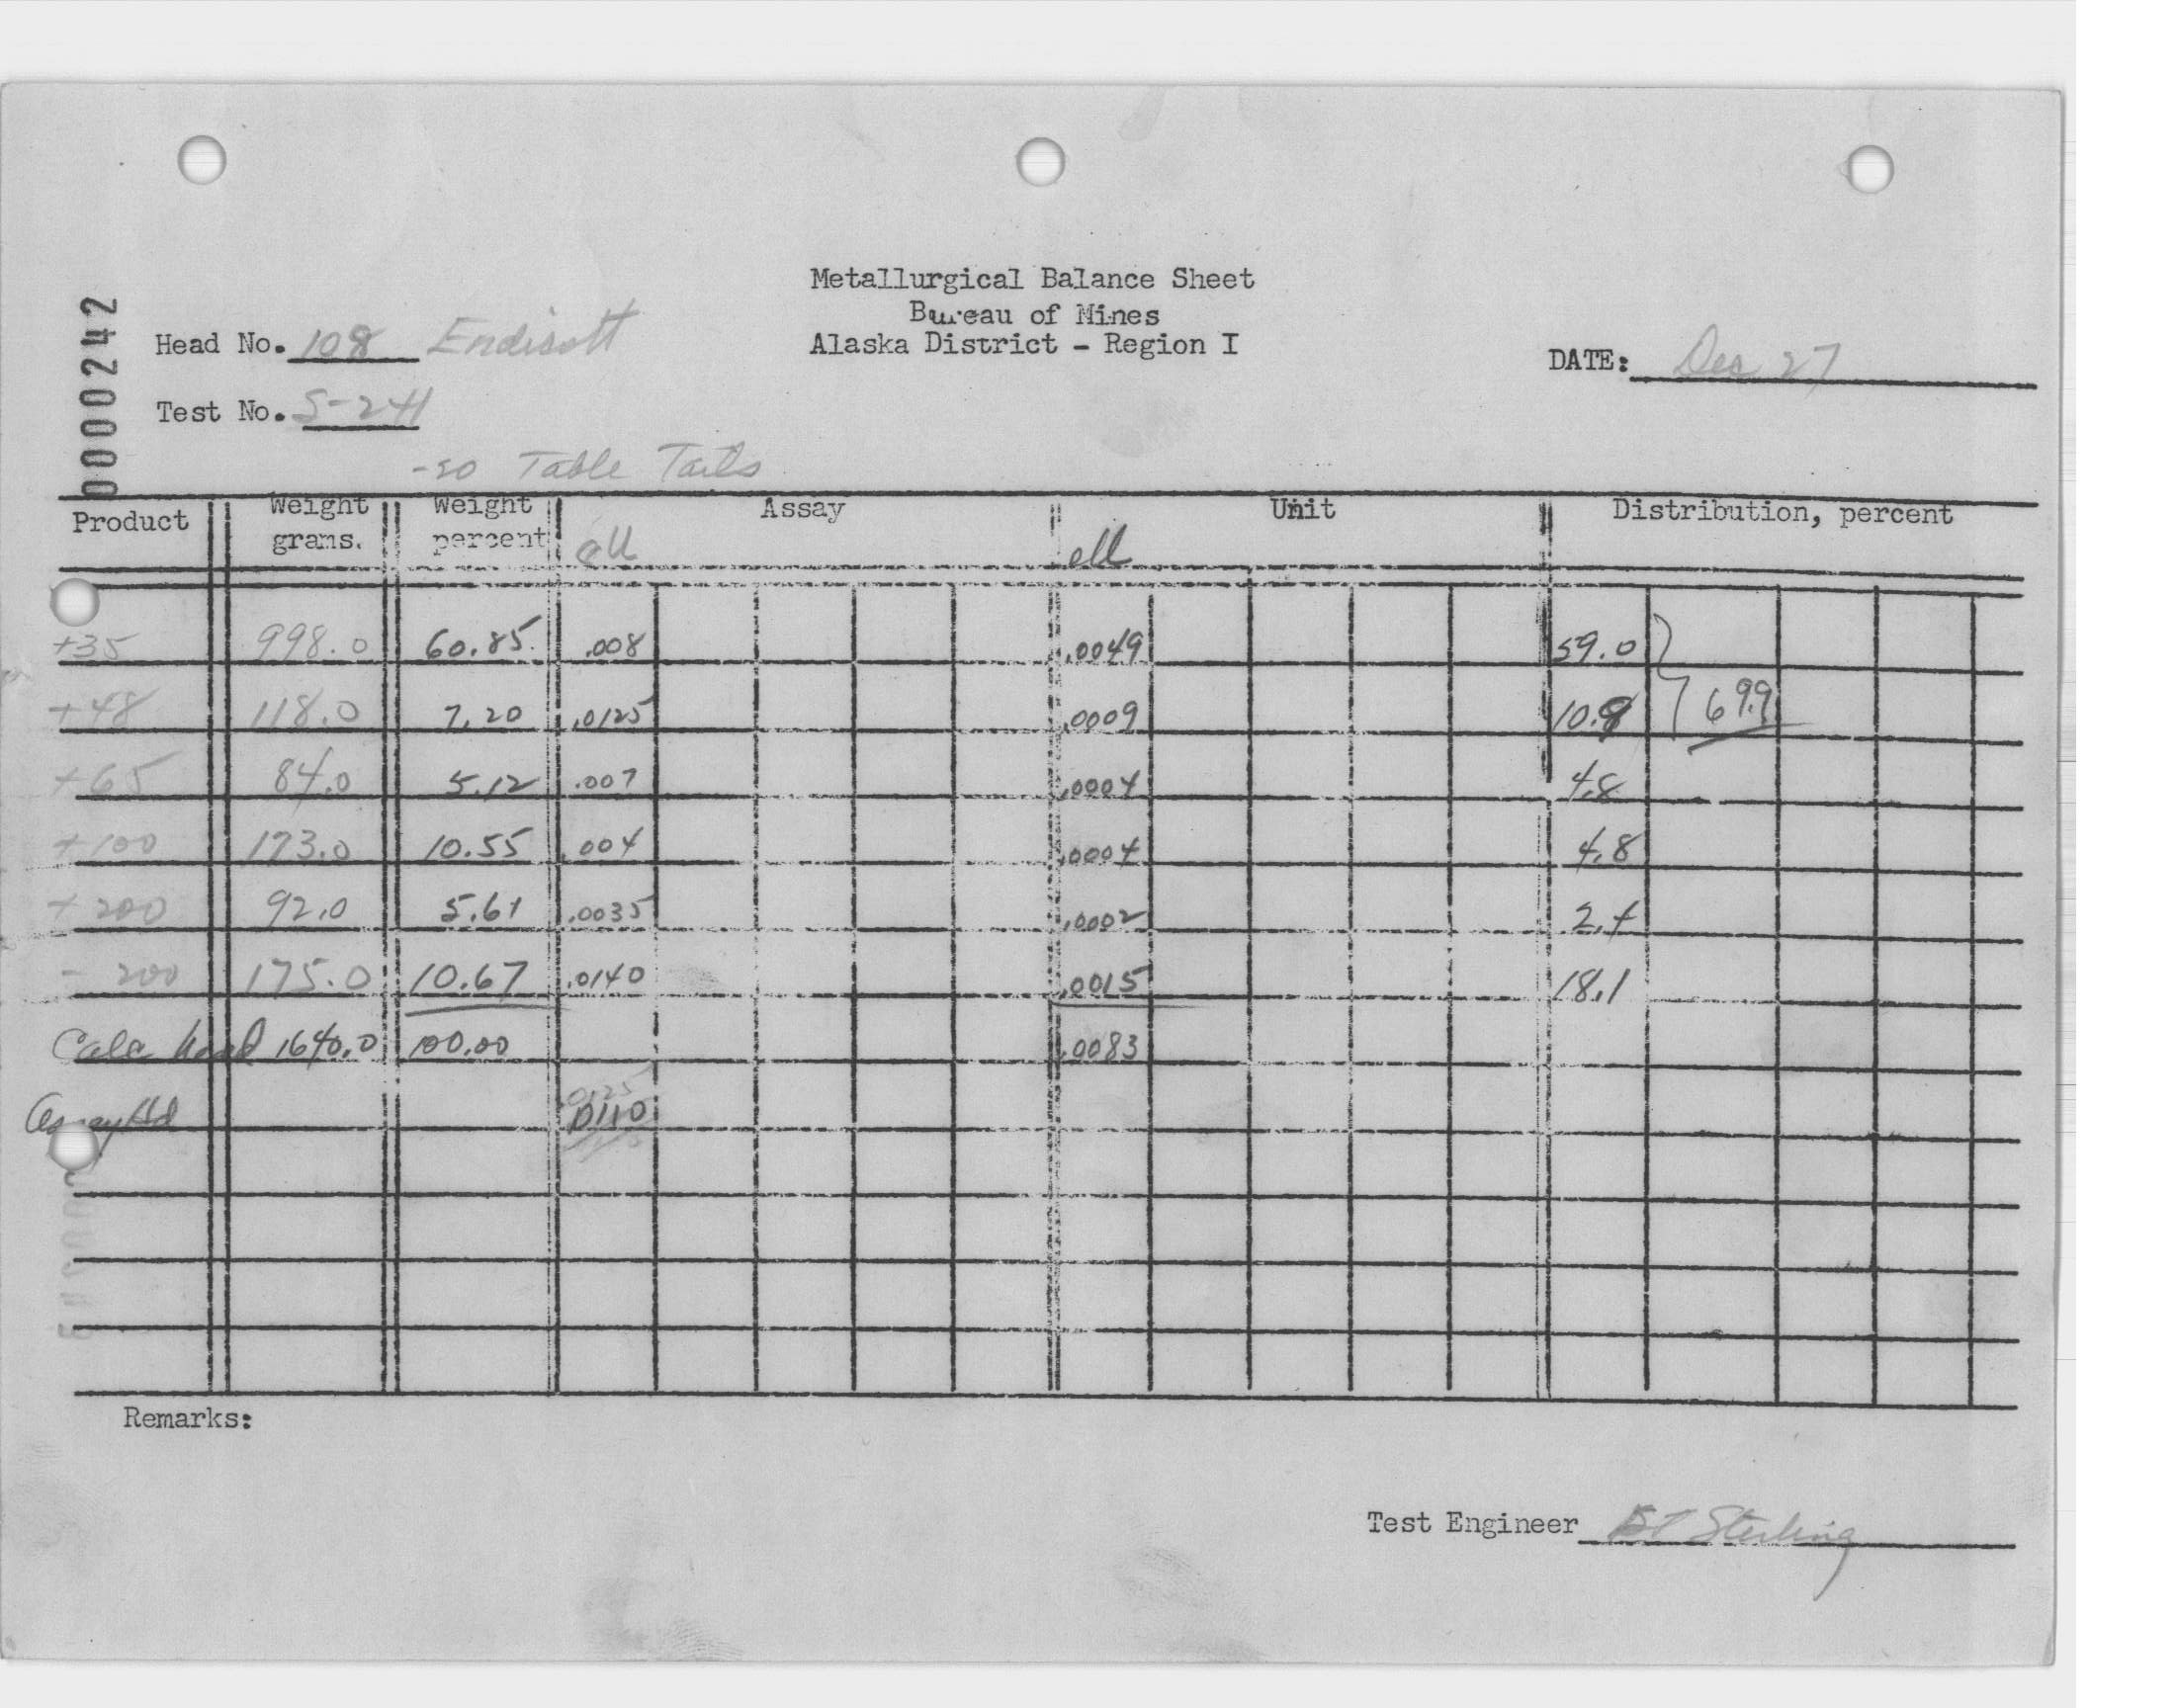 0000242
Metallurgical Balance Sheet
Bureau of Mines
Alaska District - Region I
Head No. 108 Endicott
DATE: Dec 27
Test No. S-241
-20 Table Tails
Product Weight grams. Weight percent Assay Unit Distribution, percent
+35 998.0 60.85 .008 .0049 59.0
+48 118.0 7.20 .0125 .0009 10.9 69.9
+65 84.0 5.12 .007 .0004 4.8
+100 173.0 10.55 .004 .0004 4.8
+200 92.0 5.61 .0035 .0002 2.4
-200 175.0 10.67 .0140 .0015 18.1
Calc head 1640.0 100.00 .0083
.0125
Assay Hd .0110
Remarks:
Test Engineer Sterling